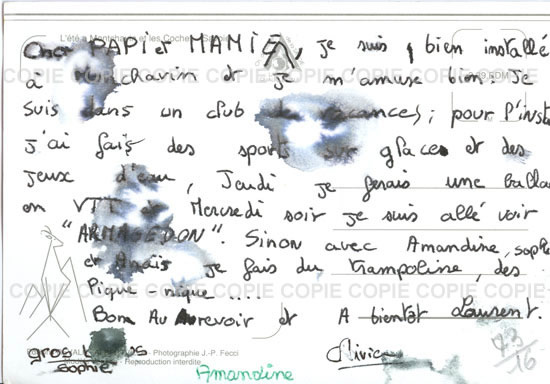 L'été à Montchavin et les Coches - Savoie
Cher PAPI et MAMIE, je suis bien installé
à Mon chavin et je m'amuse bien. Je
suis dans un club de vacances; pour l'inst
j'ai fais des sports sur glace et des
jeux d'eau, Jeudi je ferais une balla
en VTT et Mercredi soir je suis allé voir
"ARMAGEDON". Sinon avec Amandine, sophie
et Anaïs je fais du trampoline, des
Pique-nique ....
Bon Au revoir et A bientôt Laurent.
gros
sophie
Amandine
Olivier
93/16
- Photographie J.-P. Fecci
- Reproduction interdite
COPIE COPIE COPIE COPIE COPIE COPIE COPIE